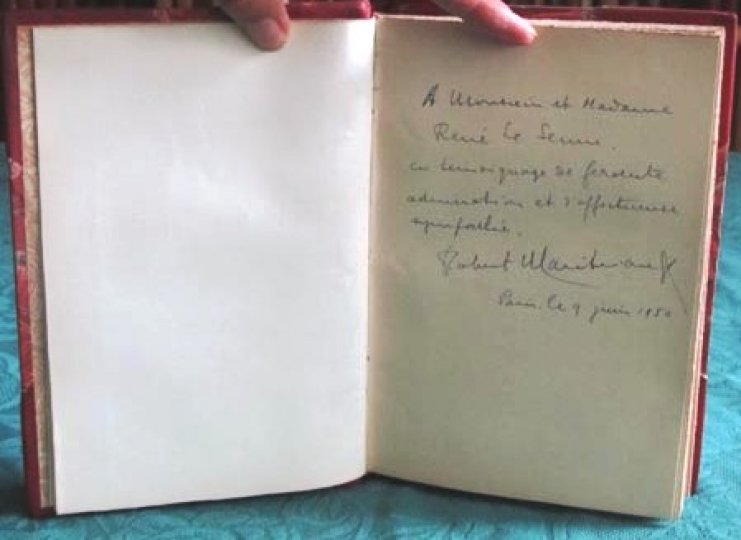 A Monsieur et Madame
René Le Senne.
en témoignage de fervente
admiration et d'affectueuse
sympathie.
Robert
Paris. le 9 juin 1950